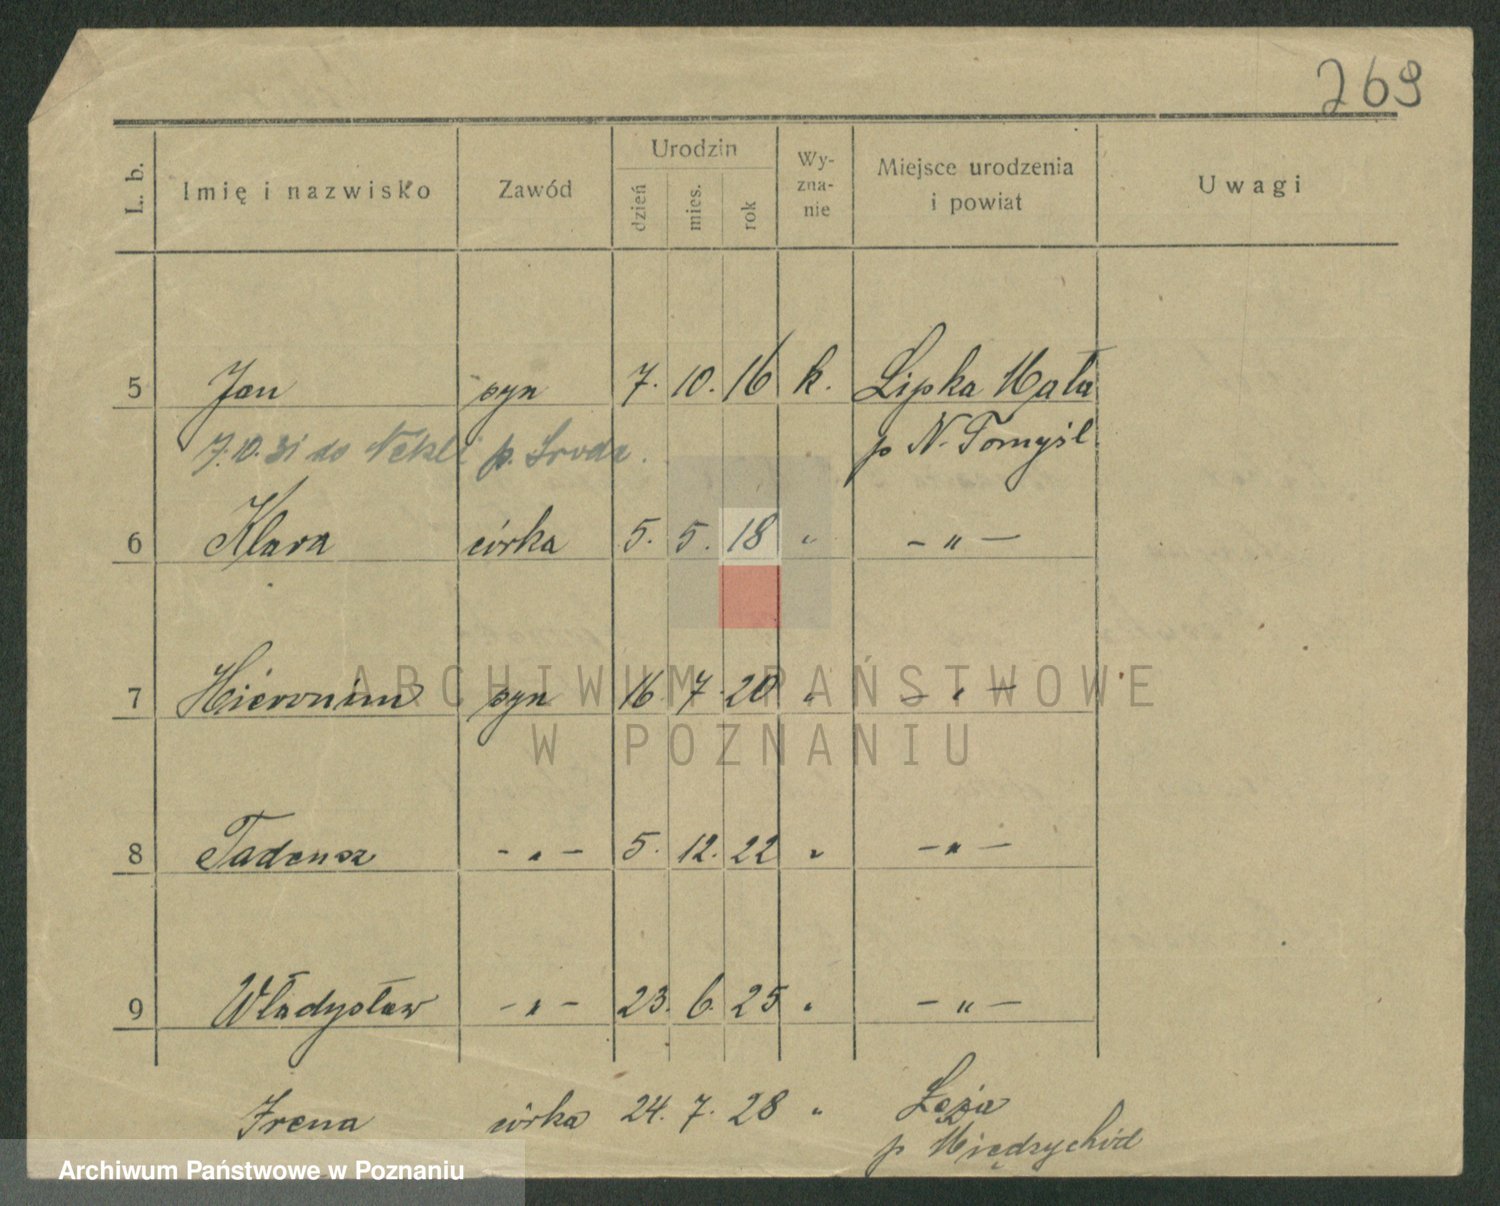 269
L. b. Imię i nazwisko Zawód Urodzin dzień mies. rok Wy-zna-nie Miejsce urodzenia i powiat Uwagi
5 Jan syn 7. 10. 16 k. Lipka Mała
p N. Tomyśl
7.10.31 do Nekli p. Środa.
6 Klara córka 5. 5. 18 " - " -
7 Hieronim syn 16 7. 20 " - " -
ARCHIWUM PAŃSTWOWE
W POZNANIU
8 Tadeusz - " - 5. 12. 22 " - " -
9 Władysław - " - 23. 6. 25 " - " -
Irena córka 24. 7. 28 "
p Międzychód
Archiwum Państwowe w Poznaniu